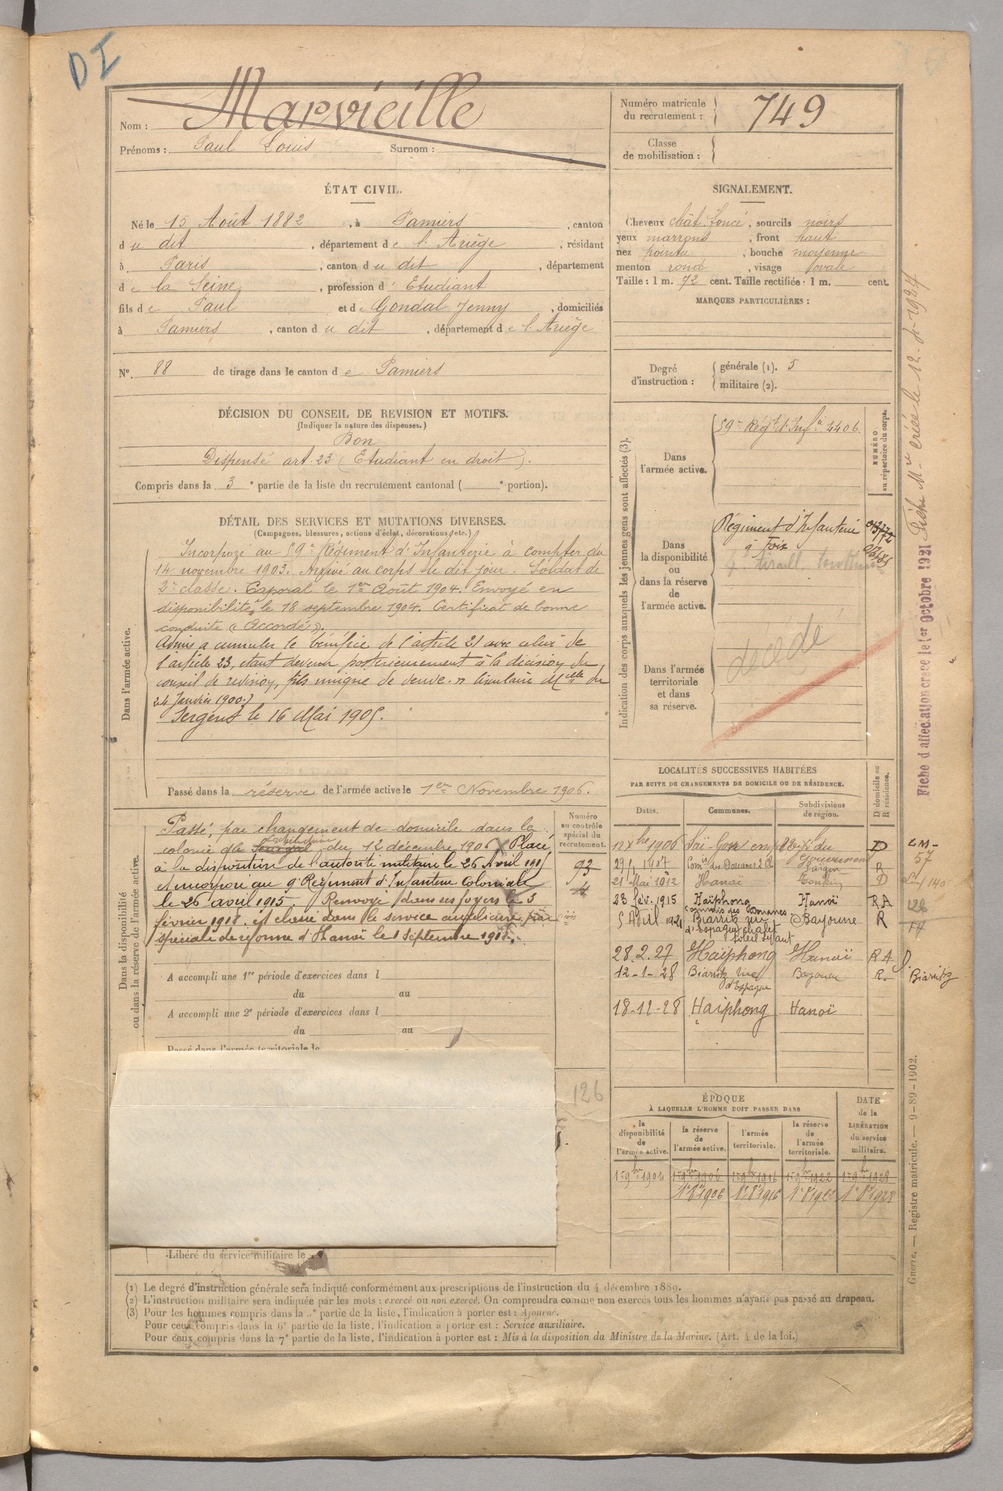 DI
Nom : Marvieille
Prénoms : Paul Louis Surnom :
Numéro matricule du recrutement : 749
Classe de mobilisation :
ÉTAT CIVIL.
Né le 15 Août 1882, à Pamiers, canton
du dit, département de l'Ariège, résidant
à Paris, canton du dit, département
de la Seine, profession d'Etudiant
fils de Paul et de Gondal Jenny, domiciliés
à Pamiers, canton du dit, département de l'Ariège
SIGNALEMENT.
Cheveux chât. foncé, sourcils noirs
yeux marrons, front haut
nez pointu, bouche moyenne
menton rond, visage ovale
Taille : 1 m. 72 cent. Taille rectifiée : 1 m. cent.
MARQUES PARTICULIÈRES :
N°. 88 de tirage dans le canton de Pamiers
Degré d'instruction : générale (1). 5
militaire (2).
DÉCISION DU CONSEIL DE REVISION ET MOTIFS.
(Indiquer la nature des dispenses.)
Bon
Dispensé art. 23 (Etudiant en droit).
Compris dans la 3e partie de la liste du recrutement cantonal ( e portion).
DÉTAIL DES SERVICES ET MUTATIONS DIVERSES.
(Campagnes, blessures, actions d'éclat, décorations, etc.)
Dans l'armée active.
Incorporé au 59e Régiment d'Infanterie à compter du
14 novembre 1903. Arrivé au corps le dit jour. Soldat de
2e classe. Caporal le 1er Août 1904. Envoyé en
disponibilité le 18 septembre 1904. Certificat de bonne
conduite « Accordé ».
Admis à cumuler le bénéfice de l'article 21 avec celui de
l'article 23, étant devenu postérieurement à la décision du
conseil de revision, fils unique de veuve. Circulaire Melle du
24 Janvier 1900.
Sergent le 16 Mai 1905.
Passé dans la réserve de l'armée active le 1er Novembre 1906.
Indication des corps auxquels les jeunes gens sont affectés (3).
NUMÉRO au répertoire du corps.
Dans l'armée active.
59e Régt d'Infie 4406
Dans la disponibilité ou dans la réserve de l'armée active.
Régiment d'Infanterie
à Foix
Dans l'armée territoriale et dans sa réserve.
décédé
Dans la disponibilité ou dans la réserve de l'armée active.
Passé, par changement de domicile dans la
colonie du du 12 décembre 1906 Placé
à la disposition de l'autorité militaire le 26 Avril 1915
et incorporé au 9e Régiment d'Infanterie Coloniale
le 26 avril 1915. Renvoyé dans ses foyers le 3
février 1918. classé dans le service auxiliaire par
spéciale de réforme d'Hanoï le 1 Septembre
Numéro au contrôle spécial du recrutement.
93
A accompli une 1re période d'exercices dans l
du au
A accompli une 2e période d'exercices dans l
du au
Passé dans l'armée territoriale le
126
Libéré du service militaire le
LOCALITÉS SUCCESSIVES HABITÉES
PAR SUITE DE CHANGEMENTS DE DOMICILE OU DE RÉSIDENCE.
Dates. Communes. Subdivisions de région. D domicile ou R résidence.
1906 Saïgon D
Saïgon R
21 Mai 1912 Hanoï Tonkin D
23 fév. 1915 Haïphong Hanoï RA
5 Avril 1921 Biarritz Bayonne R
28.2.27 Haïphong Hanoï RA
12-1-28 Biarritz rue d'Espagne Bayonne R.
Biarritz
18-12-28 Haïphong Hanoï
ÉPOQUE
À LAQUELLE L'HOMME DOIT PASSER DANS
la disponibilité de l'armée active. la réserve de l'armée active. l'armée territoriale. la réserve de l'armée territoriale. DATE de la LIBÉRATION du service militaire.
Fiche d'affectation créée le 1er Octobre 1921
Guerre. — Registre matricule. — 9-89-1902.
(1) Le degré d'instruction générale sera indiqué conformément aux prescriptions de l'instruction du 4 décembre 1889.
(2) L'instruction militaire sera indiquée par les mots : exercé ou non exercé. On comprendra comme non exercés tous les hommes n'ayant pas passé au drapeau.
(3) Pour les hommes compris dans la partie de la liste, l'indication à porter est : Ajourné.
Pour ceux compris dans la 6e partie de la liste, l'indication à porter est : Service auxiliaire.
Pour ceux compris dans la 7e partie de la liste, l'indication à porter est : Mis à la disposition du Ministre de la Marine. (Art. 4 de la loi.)